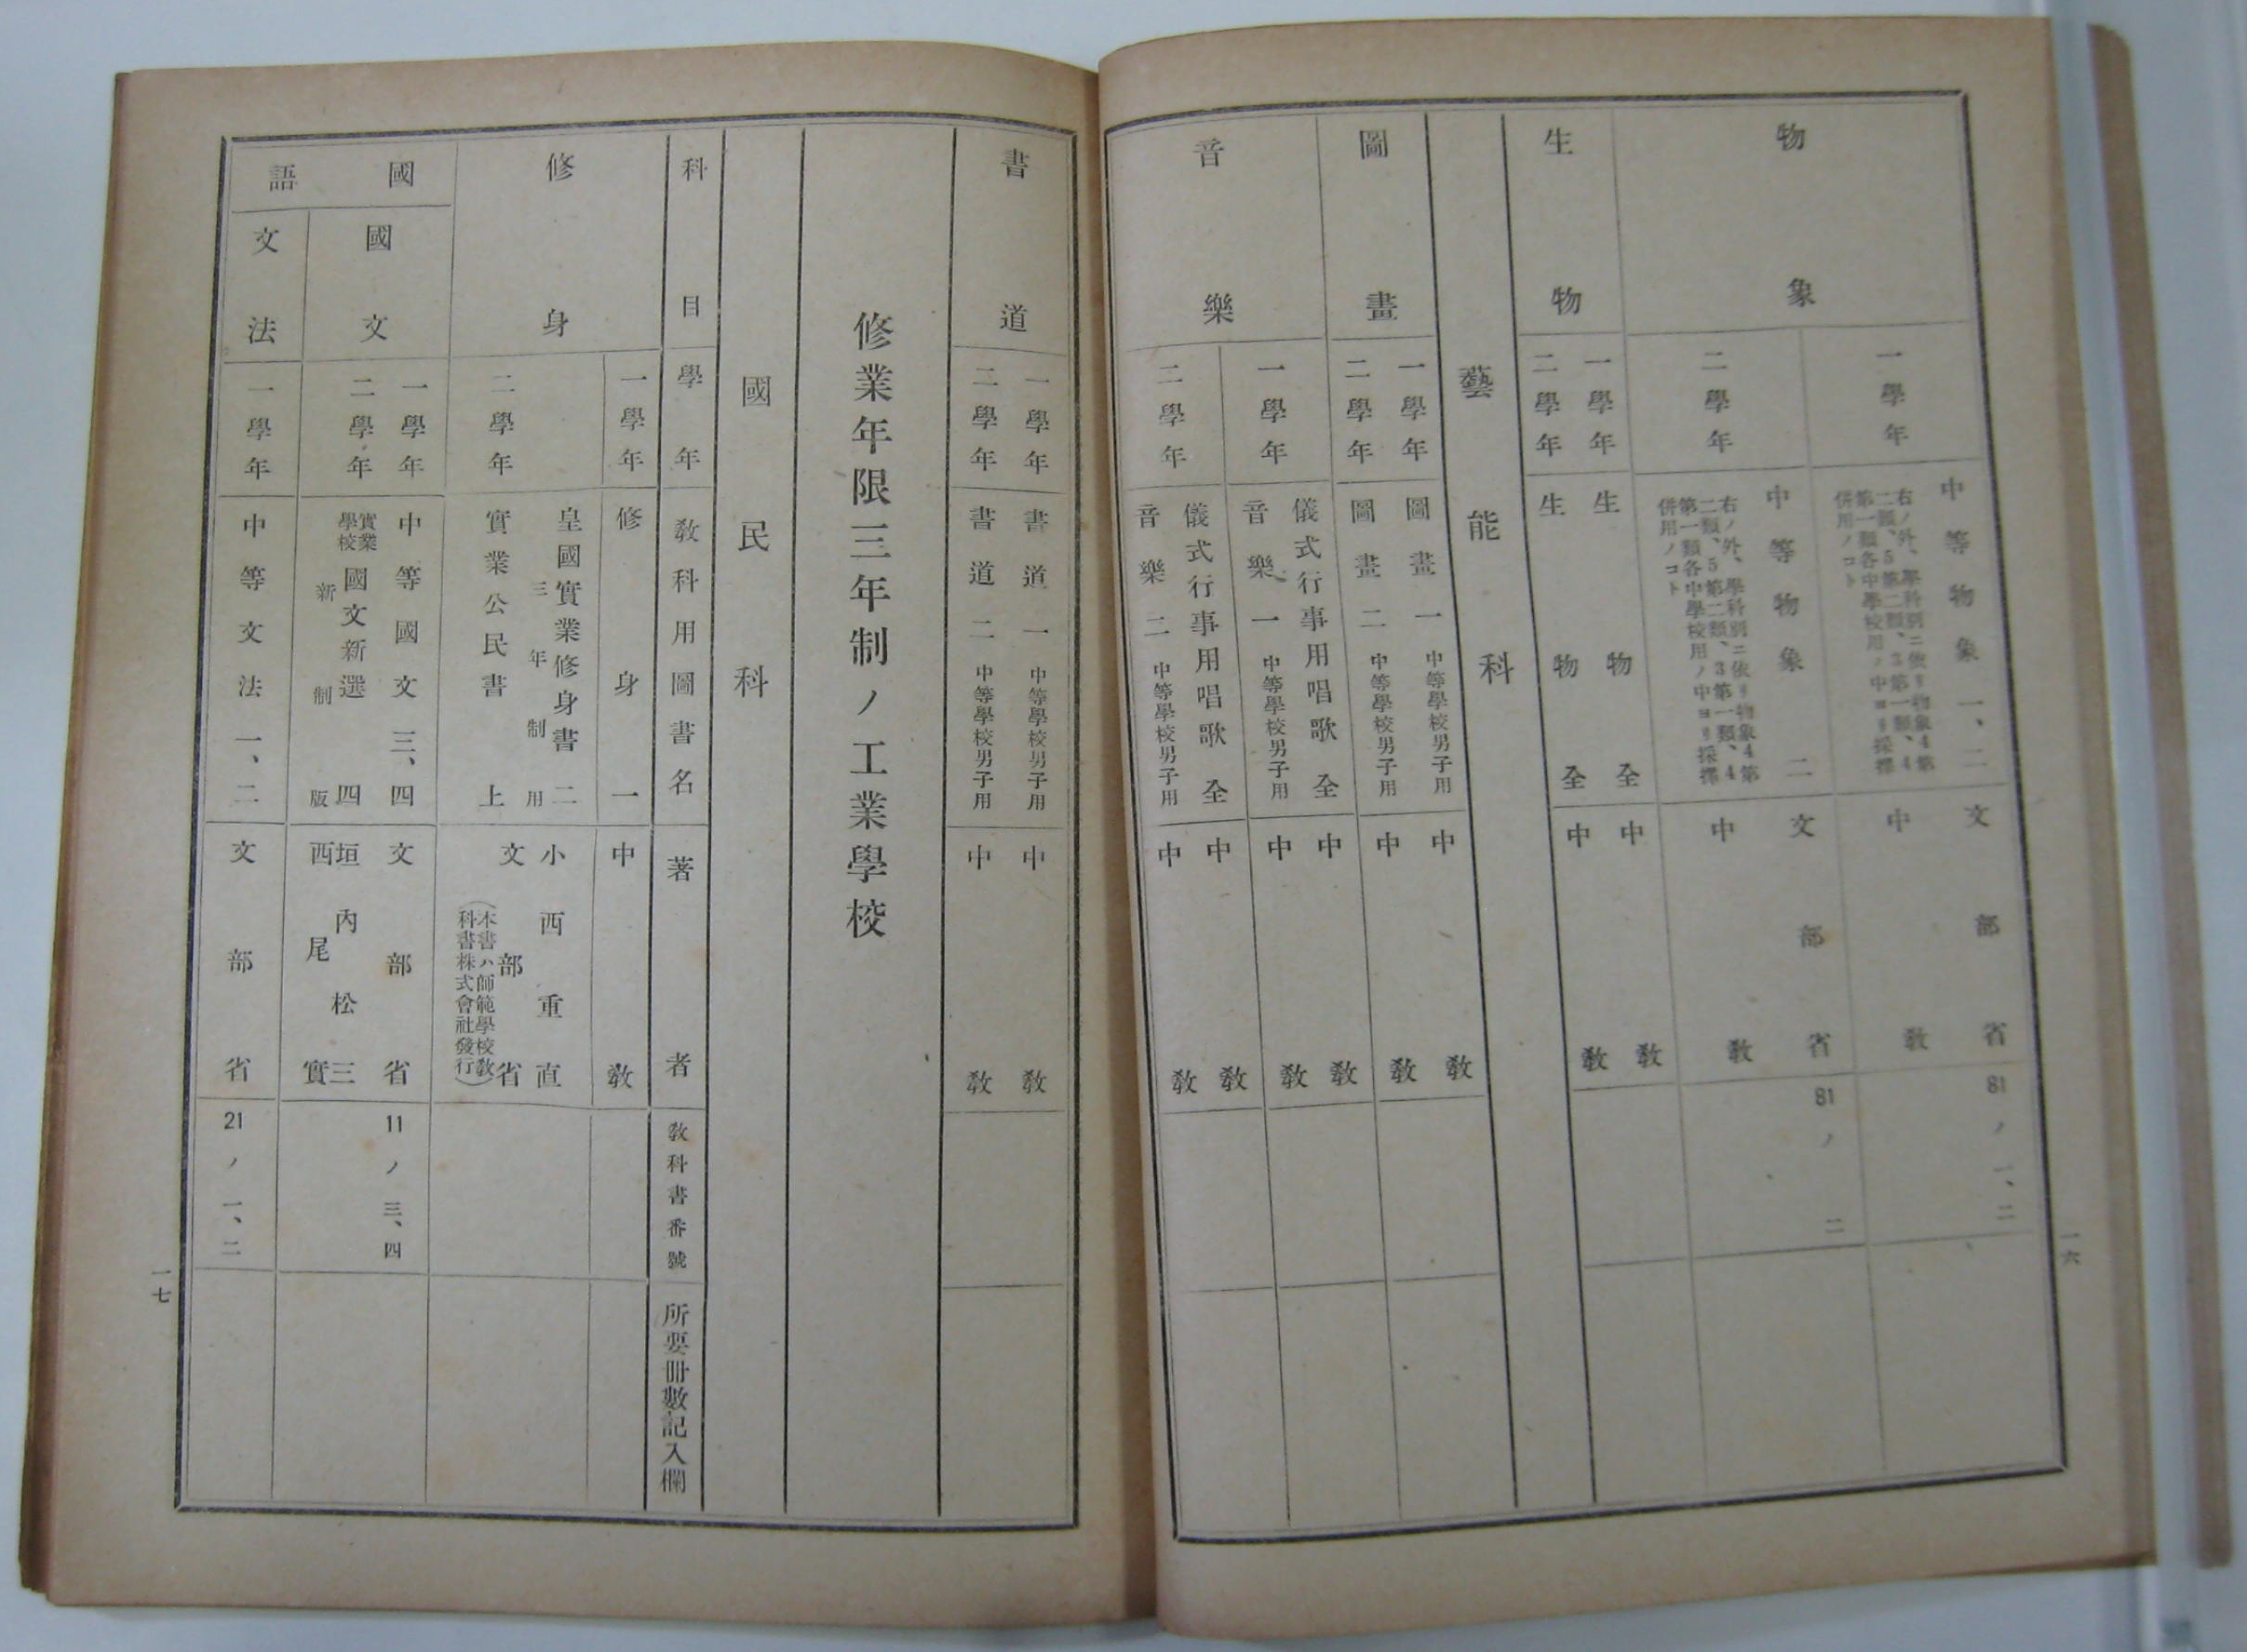 物象
一學年
中等物象一、二
右ノ外、學科別ニ依リ物象4第
二類、5第二類、3第一類、4
第一類各中學校用ノ中ヨリ採擇
併用ノコト
文部省
中教
81ノ一、二
二學年
中等物象二
右ノ外、學科別ニ依リ物象4第
二類、5第二類、3第一類、4
第一類各中學校用ノ中ヨリ採擇
併用ノコト
文部省
中教
81ノ二
生物
一學年
生物全
中教
二學年
生物全
中教
藝能科
圖畫
一學年
圖畫一中等學校男子用
中教
二學年
圖畫二中等學校男子用
中教
音樂
一學年
儀式行事用唱歌全
中教
音樂一中等學校男子用
中教
二學年
儀式行事用唱歌全
中教
音樂二中等學校男子用
中教
一六
書道
一學年
書道一中等學校男子用
中教
二學年
書道二中等學校男子用
中教
修業年限三年制ノ工業學校
國民科
科目
學年
教科用圖書名
著者
教科書番號
所要冊數記入欄
修身
一學年
修身一
中教
二學年
皇國實業修身書二
三年制用
小西重直
實業公民書上
文部省
(本書ハ師範學校教
科書株式會社發行)
國語
國文
一學年
中等國文三、四
文部省
11ノ三、四
二學年
實業學校國文新選四
新制版
垣內松三
西尾實
文法
一學年
中等文法一、二
文部省
21ノ一、二
一七